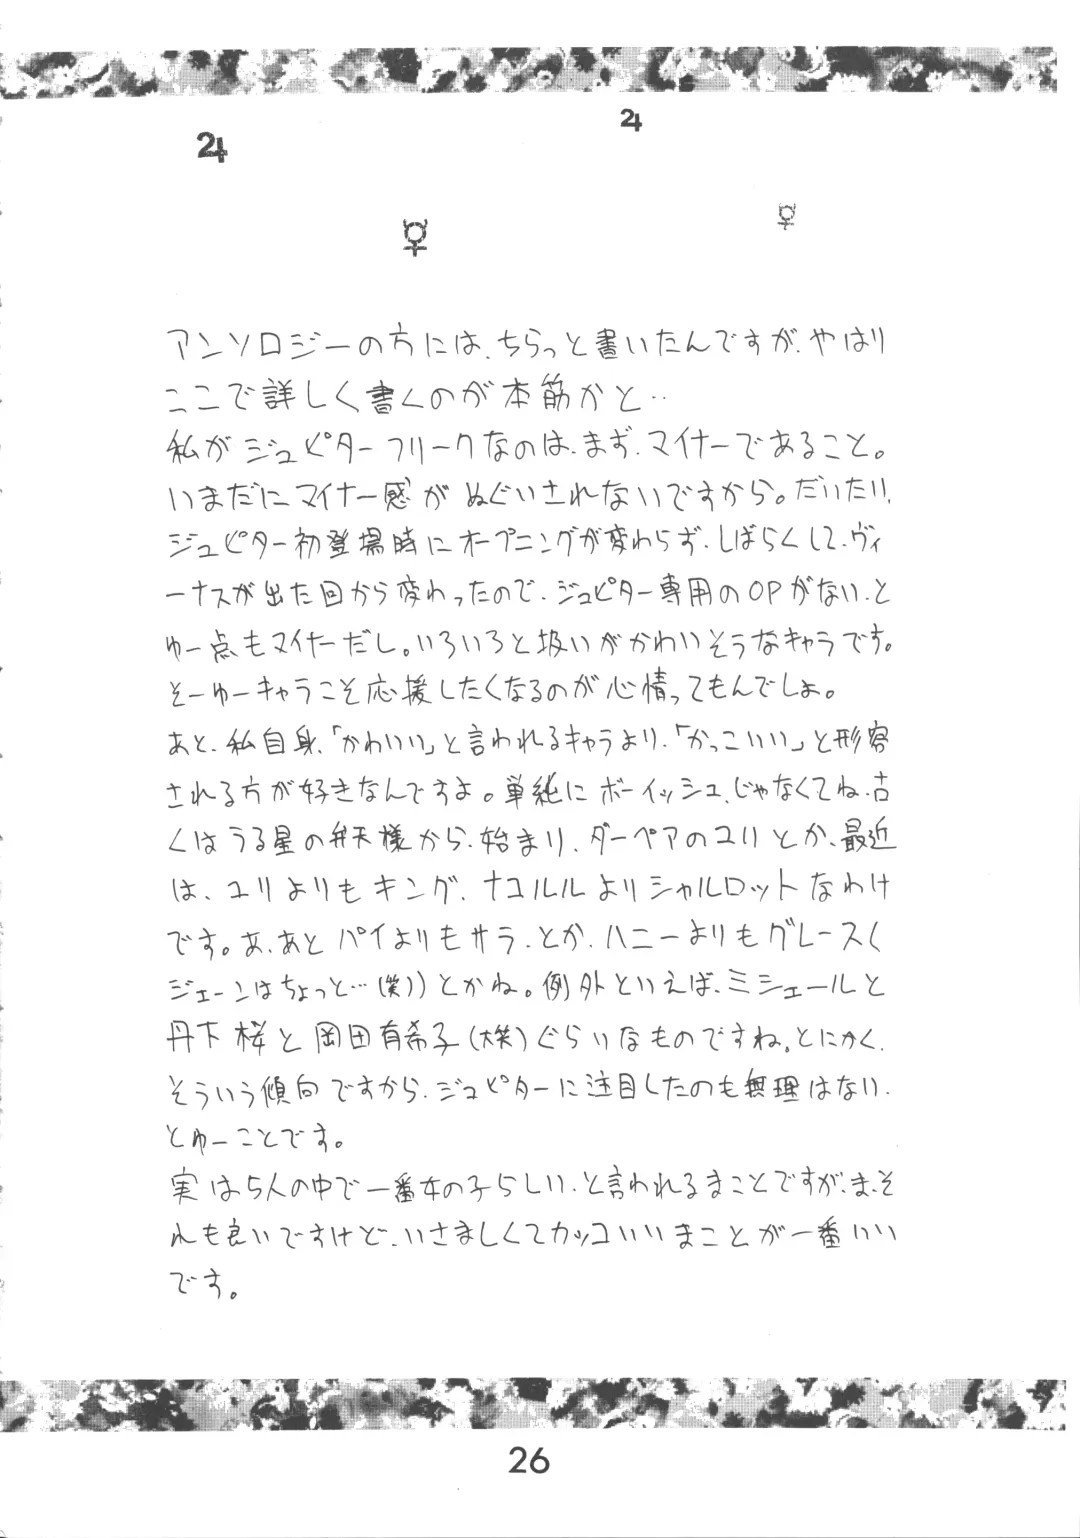 ♃
♃
☿
☿
アンソロジーの方には、ちらっと書いたんですが、やはり
ここで詳しく書くのが本筋かと‥
私がジュピターフリークなのは、まず、マイナーであること。
いまだにマイナー感がぬぐいされないですから。だいたい、
ジュピター初登場時にオープニングが変わらず、しばらくして、ヴィ
ーナスが出た回から変わったので、ジュピター専用のOPがない、と
ゆー点もマイナーだし。いろいろと扱いがかわいそうなキャラです。
そーゆーキャラこそ応援したくなるのが心情ってもんでしょ。
あと、私自身、「かわいい」と言われるキャラより、「かっこいい」と形容
される方が好きなんですよ。単純にボーイッシュ、じゃなくてね、古
くはうる星の弁天様から、始まり、ダーペアのユリとか、最近
は、ユリよりもキング、ナコルルよりシャルロットなわけ
です。あ、あとパイよりもサラ、とか、ハニーよりもグレース(
ジェーンはちょっと…(笑))とかね。例外といえば、ミシェールと
丹下桜と岡田有希子(大笑)ぐらいなものですね。とにかく、
そういう傾向ですから、ジュピターに注目したのも無理はない、
とゆーことです。
実は5人の中で一番女の子らしい、と言われるまことですが、ま、そ
れも良いですけど、いさましくてカッコいいまことが一番いい
です。
26